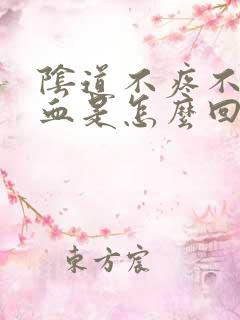 陰道不疼不
血是怎麼回
東方宸